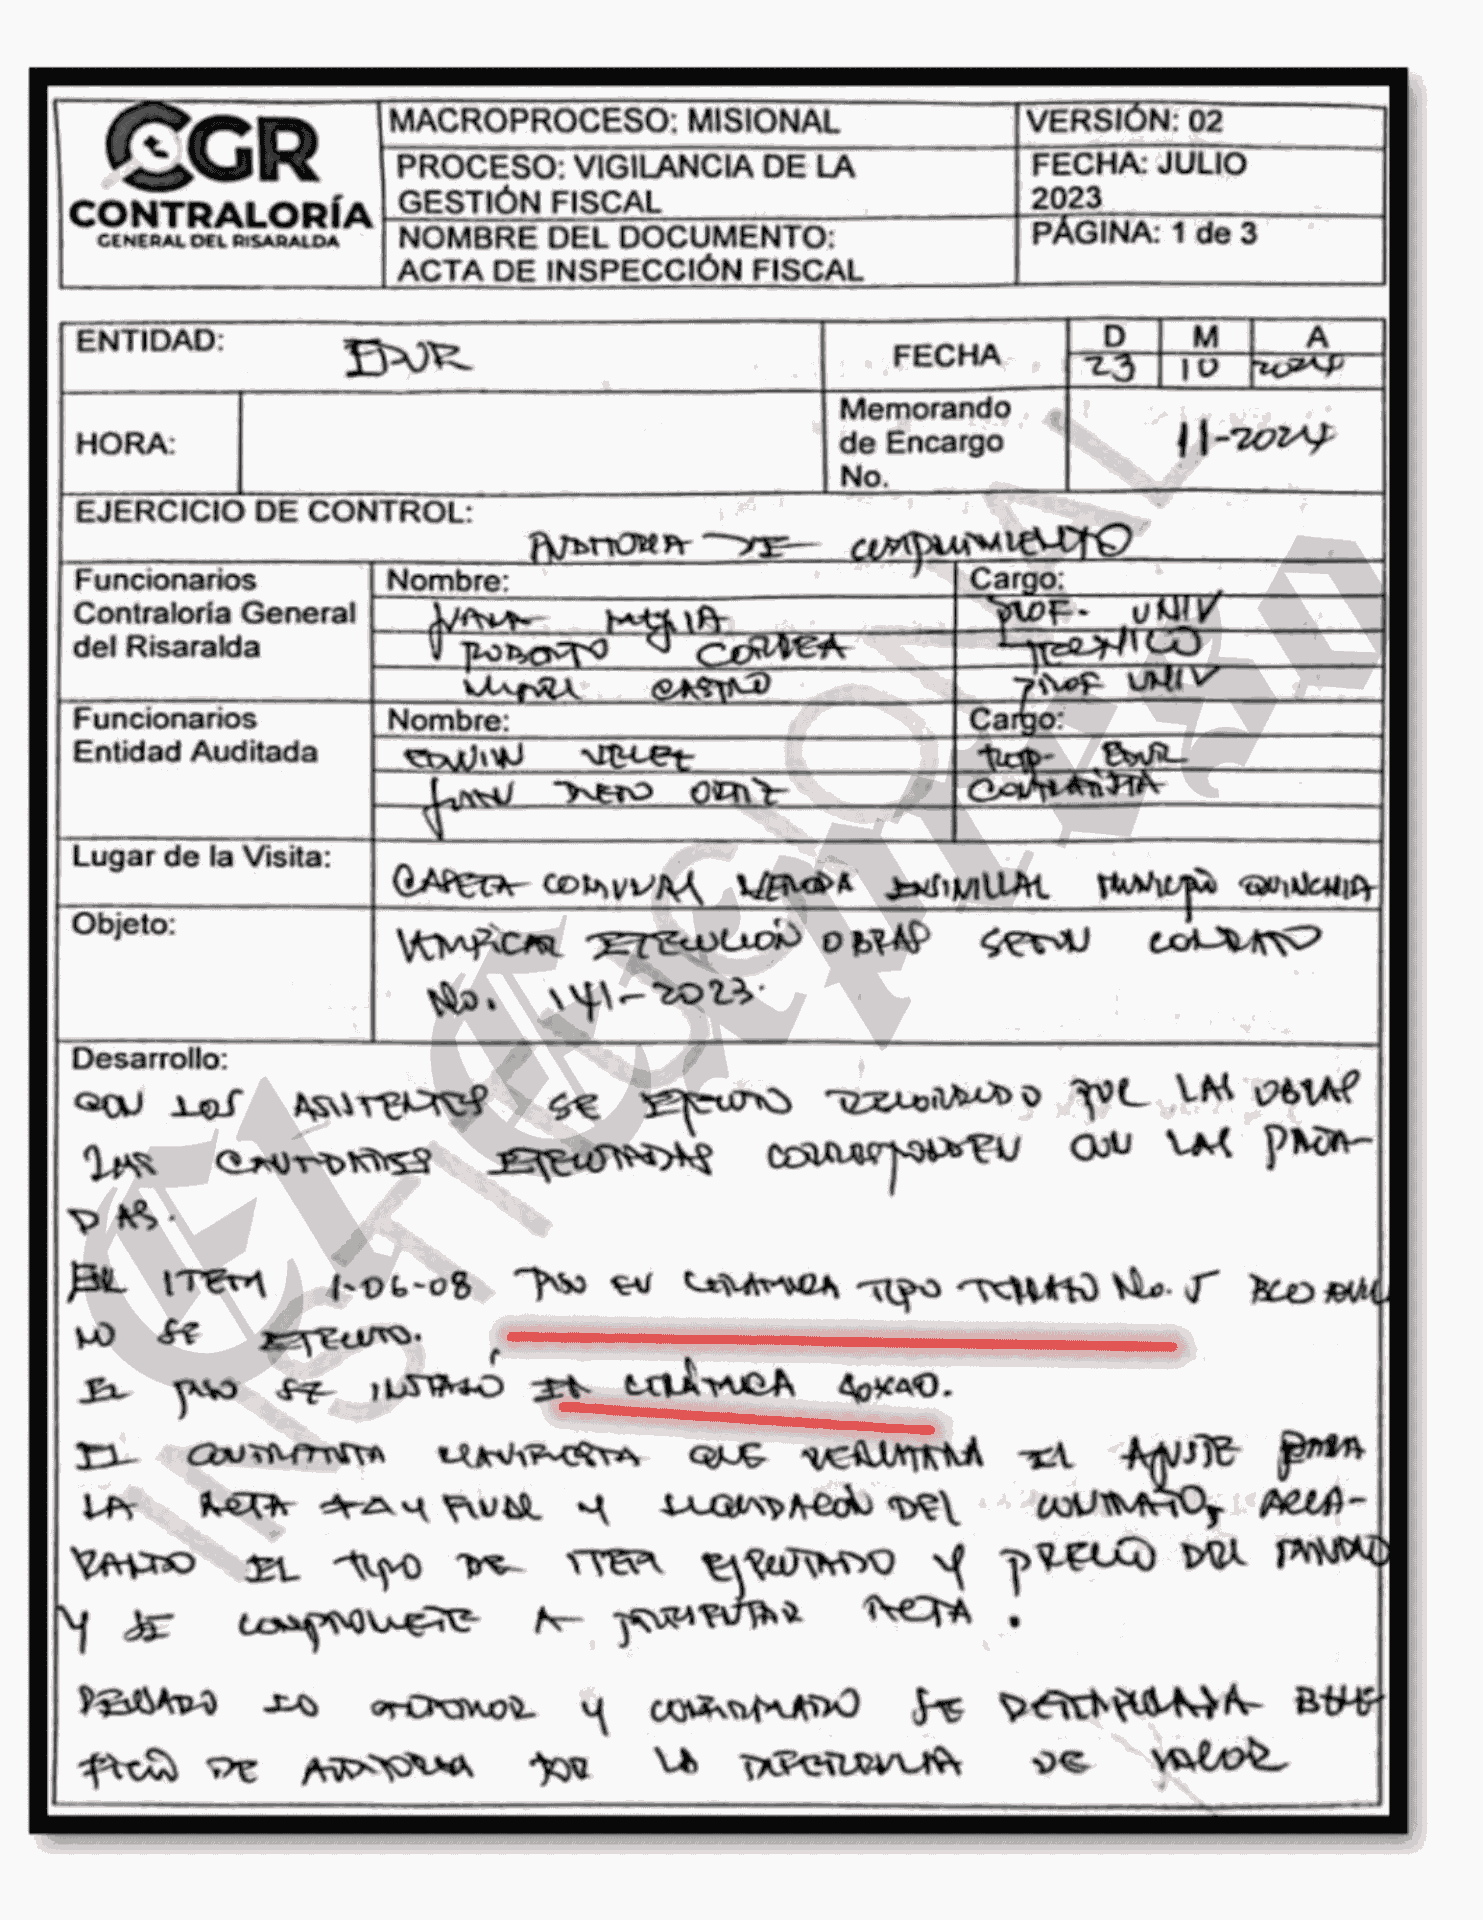 CGR
CONTRALORÍA
GENERAL DEL RISARALDA
MACROPROCESO: MISIONAL
PROCESO: VIGILANCIA DE LA
GESTIÓN FISCAL
NOMBRE DEL DOCUMENTO:
ACTA DE INSPECCIÓN FISCAL
VERSIÓN: 02
FECHA: JULIO
2023
PÁGINA: 1 de 3
ENTIDAD: EDUR
FECHA
D M A
23 10 2024
HORA:
Memorando
de Encargo
No.
11-2024
EJERCICIO DE CONTROL:
AUDITORIA DE CUMPLIMIENTO
Funcionarios
Contraloría General
del Risaralda
Nombre: Cargo:
MEJIA PROF. UNIV
ROBERTO CORREA TECNICO
CASTRO PROF UNIV
Funcionarios
Entidad Auditada
Nombre: Cargo:
EDWIN VELEZ EDUR
JUAN DIEGO ORTIZ CONTRATISTA
Lugar de la Visita:
CASETA COMUNAL VEREDA ENSENILLAL MUNICIPIO QUINCHIA
Objeto:
VERIFICAR EJECUCIÓN OBRAS SEGUN CONTRATO
No. 141-2023.
Desarrollo:
CON LOS ASISTENTES SE EFECTUO RECORRIDO POR LAS OBRAS
LAS CANTIDADES EJECUTADAS CORRESPONDEN CON LAS PAGA-
DAS.
EL ITEM 1-06-08 PISO EN CERAMICA TIPO TERRAZO No. 5 BCO
NO SE EJECUTO.
EL PISO SE INSTALÓ EN CERÁMICA 40X40.
EL CONTRATISTA MANIFIESTA QUE REALIZARA EL AJUSTE PARA
LA ACTA #2 Y FINAL Y LIQUIDACIÓN DEL CONTRATO, ACLA-
RANDO EL TIPO DE ITEM EJECUTADO Y PRECIO DEL
Y SE COMPROMETE A PRESENTAR ACTA.
LO ANTERIOR Y CONFIRMADO SE BENE
FICIO DE AUDITORIA POR LA DIFERENCIA DE VALOR
El Expreso
INSTITUCIONAL